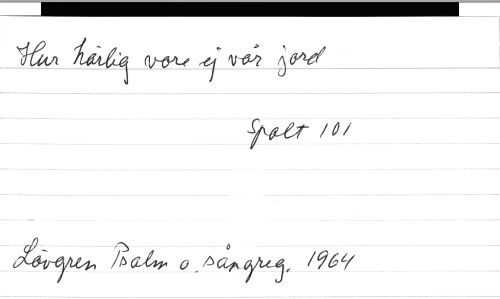 Hur härlig vore ej vår jord
Spalt 101
Lövgren Psalm o. sångreg. 1964